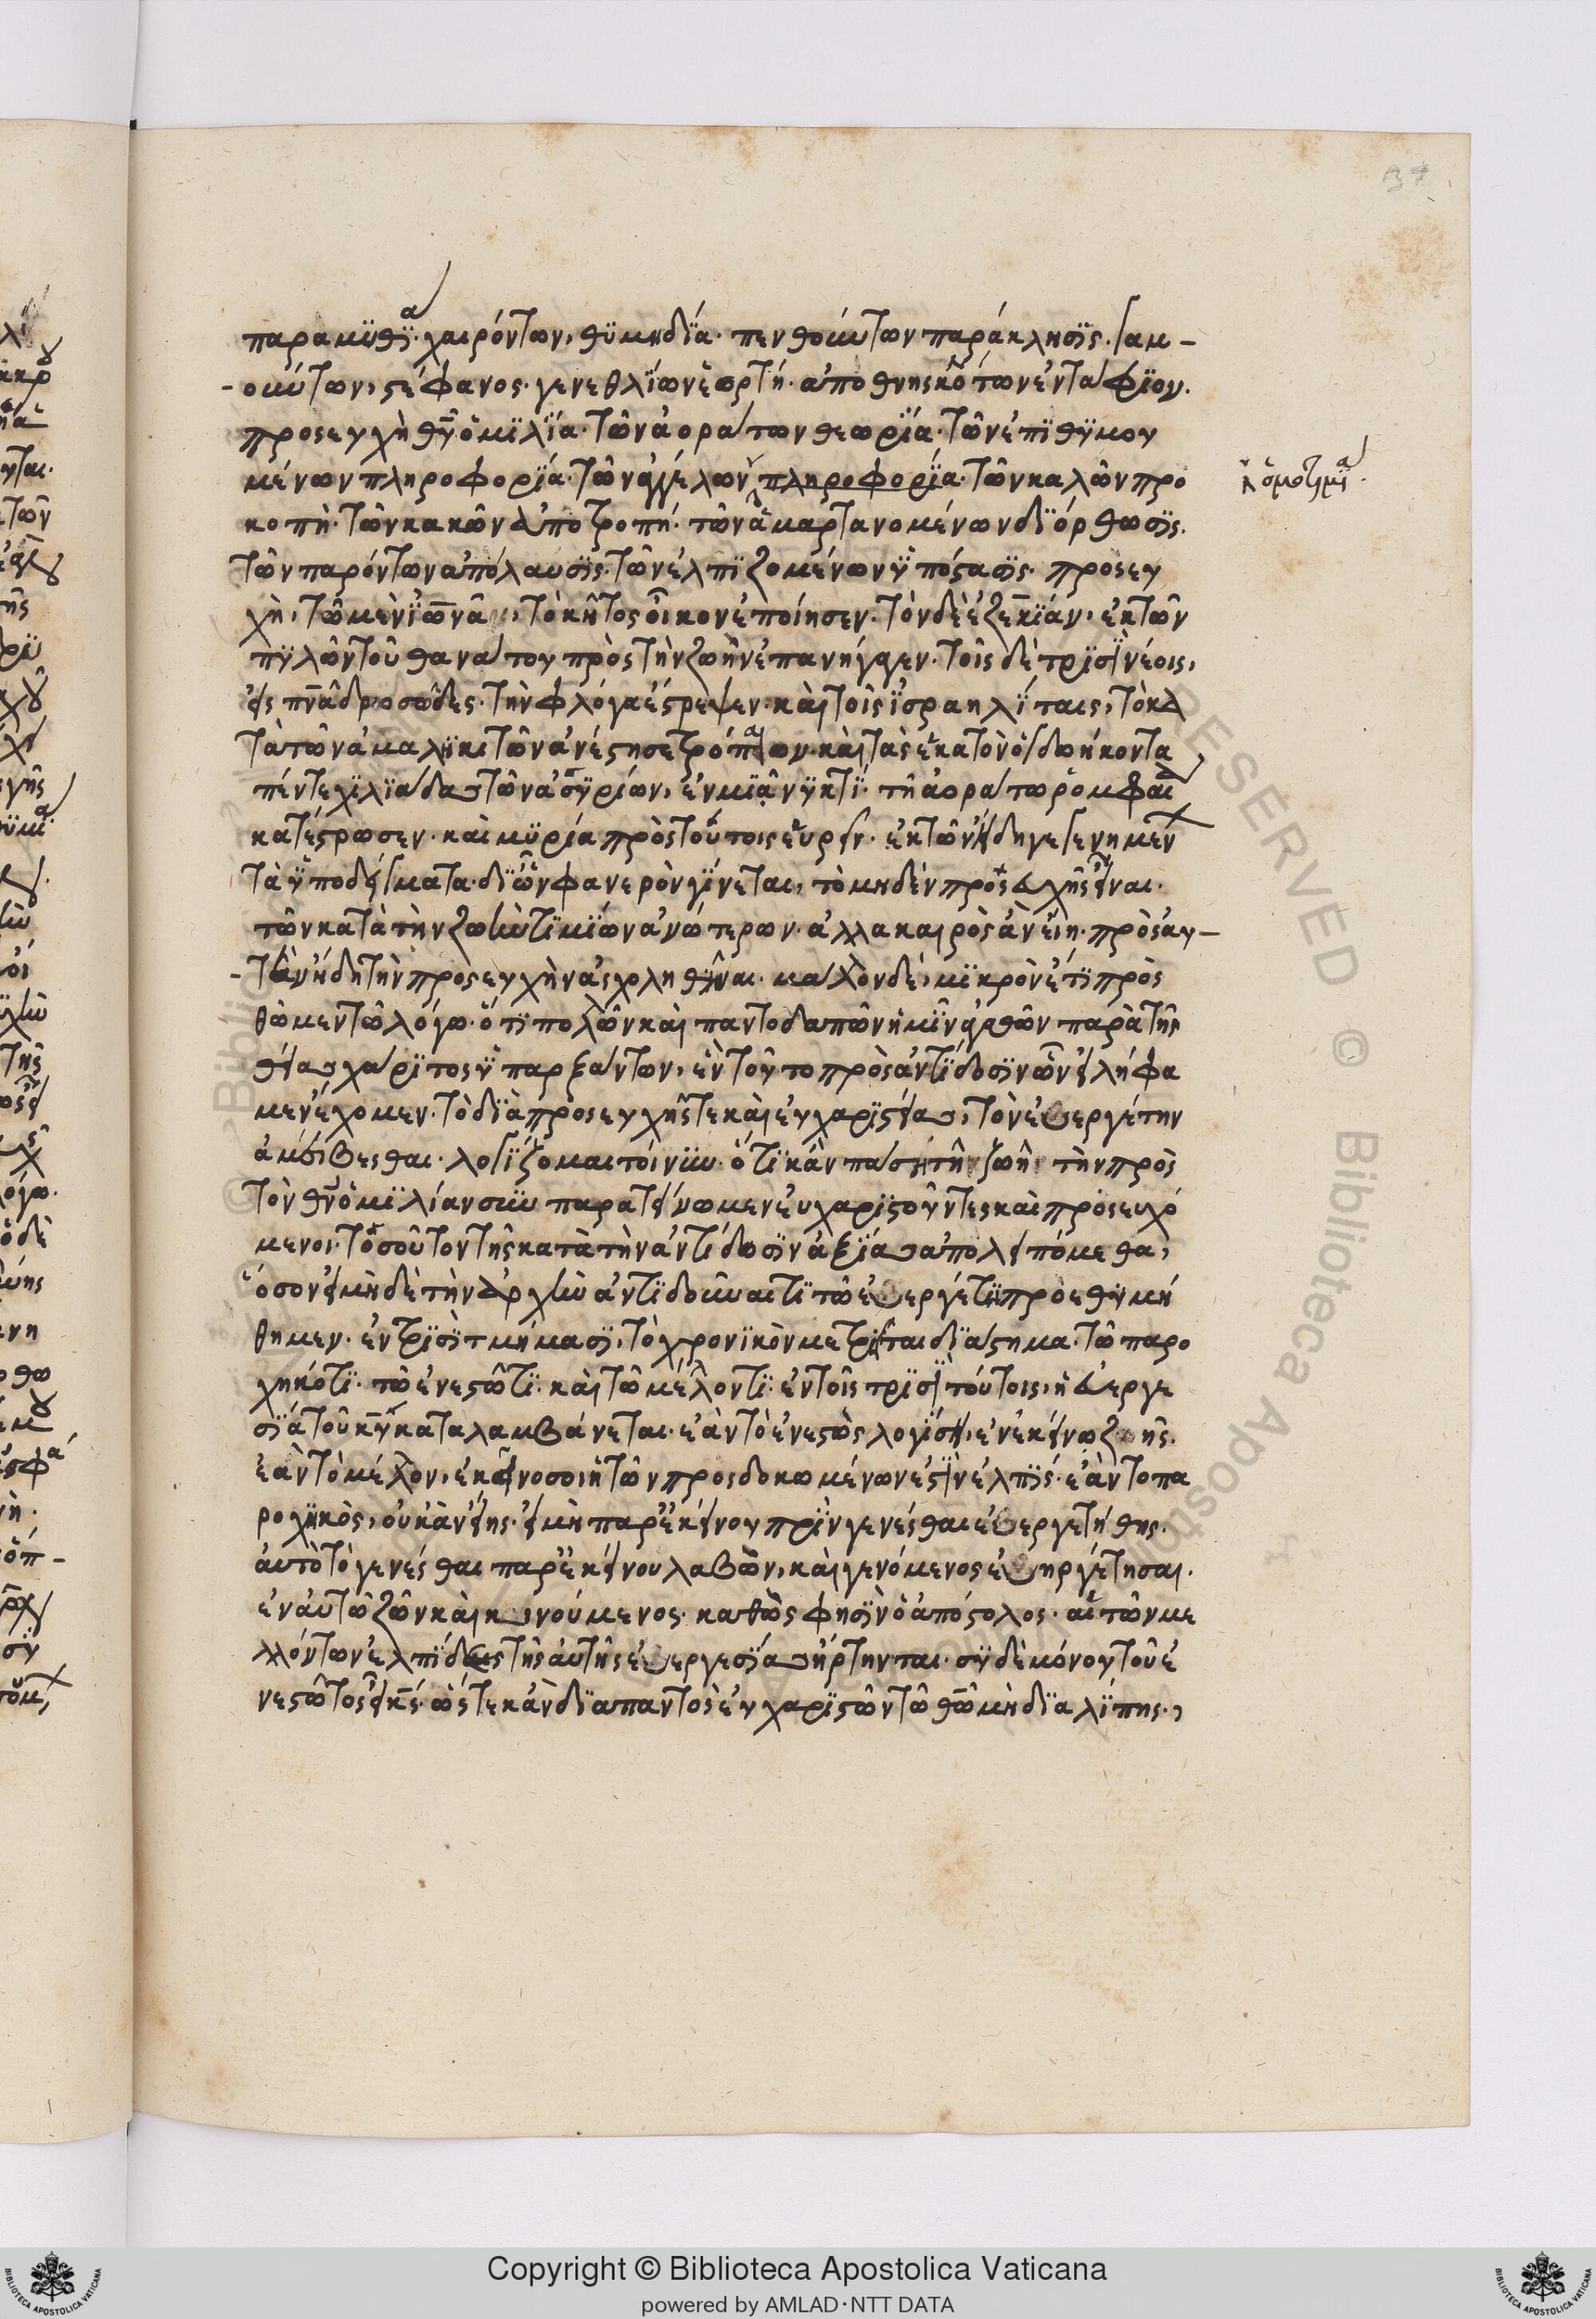 παραμυθία· χαιρόντων, θυμηδία· πενθούντων παράκλησις· γαμ-
-ούντων, στέφανος· γενεθλίων ἑορτή· ἀποθνησκότων ἐντάφιον.
προσευχὴ θυ ὁμιλία· τῶν ἀοράτων θεωρία· τῶν ἐπιθυμου
μένων πληροφορία· τῶν ἀγγέλων πληροφορία· τῶν καλῶν προ
κοπὴ· τῶν κακῶν ἀποτροπή· τῶν ἁμαρτανομένων διόρθωσις.
τῶν παρόντων ἀπόλαυσις· τῶν ἐλπιζομένων ὑπόστασις· προσευ
χὴ, τῶ μὲν ἰωνᾶ, τὸ κῆτος οἶκον ἐποίησεν· τὸν δὲ ἐζεκίαν, ἐκ τῶν
πυλῶν τοῦ θανάτου πρὸς τὴν ζωὴν ἐπανήγαγεν· τοῖς δὲ τρισὶ νέοις,
εἰς πνα δροσῶδες τὴν φλόγα ἔστρεψεν· καὶ τοῖς ἰσραηλίταις, τὸ κα
τὰ τῶν ἀμαληκιτῶν ἀνέστησε τρόπαιον· καὶ τὰς ἑκατὸν ὀγδοήκοντα
πέντε χιλιάδας τῶν ἀσσυρίων, ἐν μιᾶ νυκτὶ· τῆ ἀοράτω ῥομφαία
κατέστρωσεν· καὶ μυρία πρὸς τούτοις εὑρεῖν· ἐκ τῶν ἤδη γεγενημένων
τὰ ὑποδείγματα· δι' ὧν φανερὸν γίνεται, τὸ μηδὲν προσευχῆς εἶναι.
τῶν κατὰ τὴν ζωὴν τιμίων ἀνώτερον· ἀλλὰ καιρὸς ἂν εἴη· πρὸς αὐ-
-τὴν ἤδη τὴν προσευχὴν ἀσχοληθῆναι· μᾶλλον δὲ, μικρὸν ἔτι προσ
θῶμεν τῶ λόγω· ὅτι πολλῶν καὶ παντοδαπῶν ἡμῖν ἀγαθῶν παρὰ τῆς
θείας χάριτος ὑπαρξάντων, ἓν τοῦτο πρὸς ἀντίδοσιν ὧν εἰλήφα
μεν ἔχομεν· τὸ διὰ προσευχῆς τε καὶ εὐχαριστίας, τὸν εὐεργέτην
ἀμείβεσθαι· λογίζομαι τοίνυν· ὅτι κἂν πάση τῆ ζωῆ τὴν πρὸς
τὸν θν ὁμιλίαν συμπαρατείνωμεν εὐχαριστοῦντες καὶ προσευχό
μενοι· τοσοῦτον τῆς κατὰ τὴν ἀντίδωσιν ἀξίας ἀπολειπόμεθα,
ὅσον εἰ μὴ δὲ τὴν ἀρχὴν ἀντιδοῦναι τι τῶ εὐεργέτη προεθυμή
θημεν· ἐν τρισὶ τμήμασι, τὸ χρονικὸν μετρεῖται διάστημα· τῶ παρο
χηκότι· τῶ ἐνεστῶτι· καὶ τῶ μέλλοντι· ἐν τοῖς τρισὶ τούτοις, ἡ εὐεργε
σία τοῦ κυ καταλαμβάνεται· ἐὰν τὸ ἐνεστὼς λογίση, ἐν ἐκείνω ζῆς.
ἐὰν τὸ μέλλον, ἐκεῖνο σοι ἡ τῶν προσδοκωμένων ἐστὶν ἐλπίς· ἐὰν το πα
ροχηκὸς, οὐκ ἂν εἴης· εἰ μὴ παρ' ἐκείνου πρὶν γενέσθαι εὐεργετήθης.
αὐτὸ τὸ γενέσθαι παρ' ἐκείνου λαβὼν, καὶ γενόμενος εὐηργέτησαι.
ἐν αὐτῶ ζῶν καὶ κινούμενος· καθὼς φησὶν ὁ ἀπόστολος· αἱ τῶν με
λλόντων ἐλπίδες τῆς αὐτῆς εὐεργεσίας ἤρτηνται· σὺ δὲ μόνου τοῦ ἐ
νεστῶτος εἶ κς· ὥστε κἂν διαπαντὸς εὐχαριστῶν τῶ θω μὴ διαλίπης,
ὁμοτιμία.